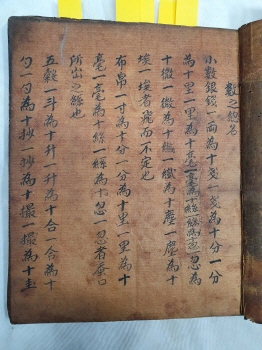 數之總名
小數銀錢一兩為十爻一爻為十分一分
為十里一里為十毫一毫為十絲一絲為十忽一忽為
十微一微為十纖一纖為十塵一塵為十
埃一埃者飛而不定也
布帛一寸為十分一分為十里一里為十
毫一毫為十絲一絲為十忽一忽者蚕口
所出之絲也
五穀一斗為十升一升為十合一合為十
勺一勺為十抄一抄為十撮一撮為十圭